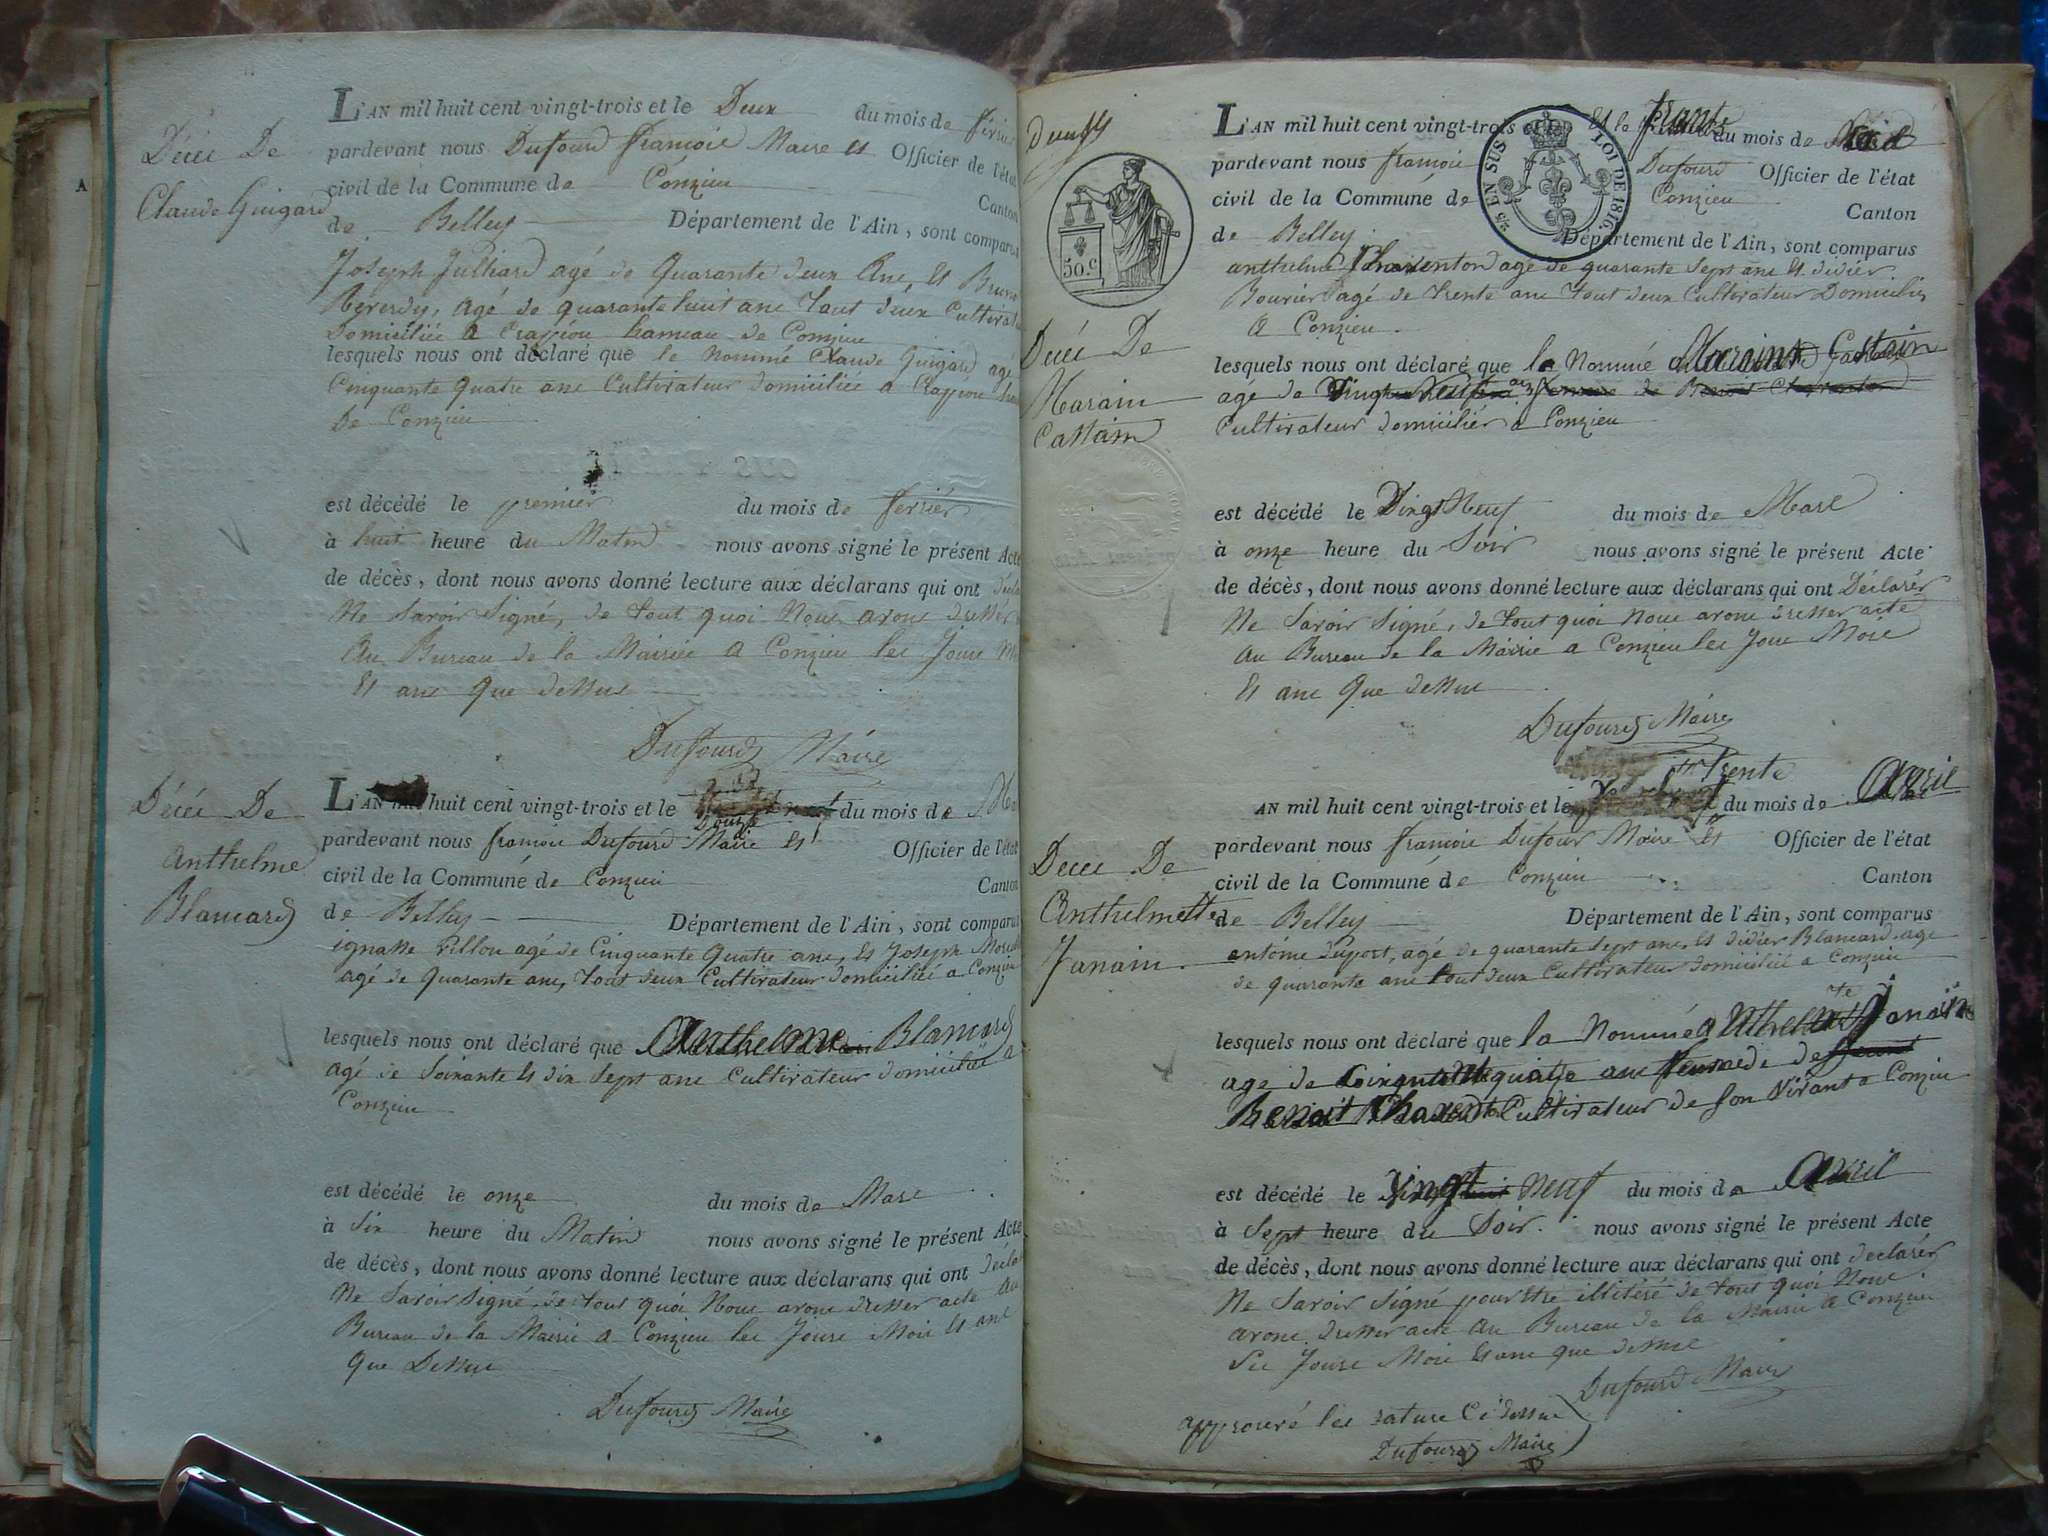 Décès De
Claude Guigard
L'AN mil huit cent vingt-trois et le Deux du mois de
pardevant nous Dufourd françois Maire et Officier de l'état
civil de la Commune de Conzieu Canton
de Belley Département de l'Ain, sont comparus
Joseph Julliard agé de Quarante deux Ans, Et
agé de quarante huit ans tout deux
Domiciliée a hameau de Conzieu
lesquels nous ont déclaré que le Nommé Claude Guigard agé
Cinquante Quatre ans Cultivateur domiciliée a
De Conzieu
est décédé le premier du mois de fevrier
à huit heure du Matin nous avons signé le présent Acte
de décès, dont nous avons donné lecture aux déclarans qui ont
Ne Savoir Signé, de tout quoi Nous avons dresser
Au Bureau de la Mairie a Conzieu les Jour
Et ans Que dessus
Dufourd Maire
Décès De
Anthelme
Blancard
L'AN mil huit cent vingt-trois et le Douze du mois de
pardevant nous françois Dufourd Maire Et Officier de l'état
civil de la Commune de Conzieu Canton
de Belley Département de l'Ain, sont comparus
ignasse Pillou agé de Cinquante Quatre ans, Et Joseph
agé de Quarante ans, tout deux Cultivateur domiciliée a Conzieu
lesquels nous ont déclaré que Anthelme Blancard
agé de Soixante Et dix Sept ans Cultivateur domiciliée a
Conzieu
est décédé le onze du mois de Mars
à Six heure du Matin nous avons signé le présent Acte
de décès, dont nous avons donné lecture aux déclarans qui ont
Ne Savoir Signé, de tout quoi Nous avons dresser acte Au
Bureau de la Mairie a Conzieu les Jours Mois Et ans
Que Dessus
Dufourd Maire
50 C
25 EN SUS LOI DE 1816.
Décès De
Marain
Castain
L'AN mil huit cent vingt-trois Et le trante du mois de
pardevant nous françois Dufourd Officier de l'état
civil de la Commune de Conzieu Canton
de Belley Département de l'Ain, sont comparus
anthelme Charenton agé de quarante Sept ans Et didier
Bourier agé de trente ans tout deux Cultivateur Domicilié
a Conzieu
lesquels nous ont déclaré que le Nommé Marain Castain
agé de Vingt Neuf ans femme de Benoit Charenton
Cultivateur domiciliér a Conzieu
est décédé le Vingt Neuf du mois de Mars
à onze heure du Soir nous avons signé le présent Acte
de décès, dont nous avons donné lecture aux déclarans qui ont Déclarér
Ne Savoir Signé, de tout quoi Nous avons dresser acte
Au Bureau de la Mairie a Conzieu les Jour Mois
Et ans Que dessus
Dufourd Maire
Décès De
Anthelmette
Janain
AN mil huit cent vingt-trois et le trente du mois de Avril
pardevant nous françois Dufour Maire Et Officier de l'état
civil de la Commune de Conzieu Canton
de Belley Département de l'Ain, sont comparus
antoine duport, agé de quarante Sept ans, Et didier Blancard agé
de quarante ans tout deux Cultivateur domiciliée a Conzieu
lesquels nous ont déclaré que la Nommé Anthelmette Janain
age de Cinquante quatre ans femme de
Benoit Charenton Cultivateur de Son Vivant a Conzieu
est décédé le Vingt Neuf du mois de Avril
à Sept heure du Soir nous avons signé le présent Acte
de décès, dont nous avons donné lecture aux déclarans qui ont declarér
Ne Savoir Signé pour être illitéré de tout quoi Nous
avons dresser acte Au Bureau de la Mairie a Conzieu
Jours Mois Et ans que dessus
Dufourd Maire
approuvé les rature Ci dessus
Dufourd Maire